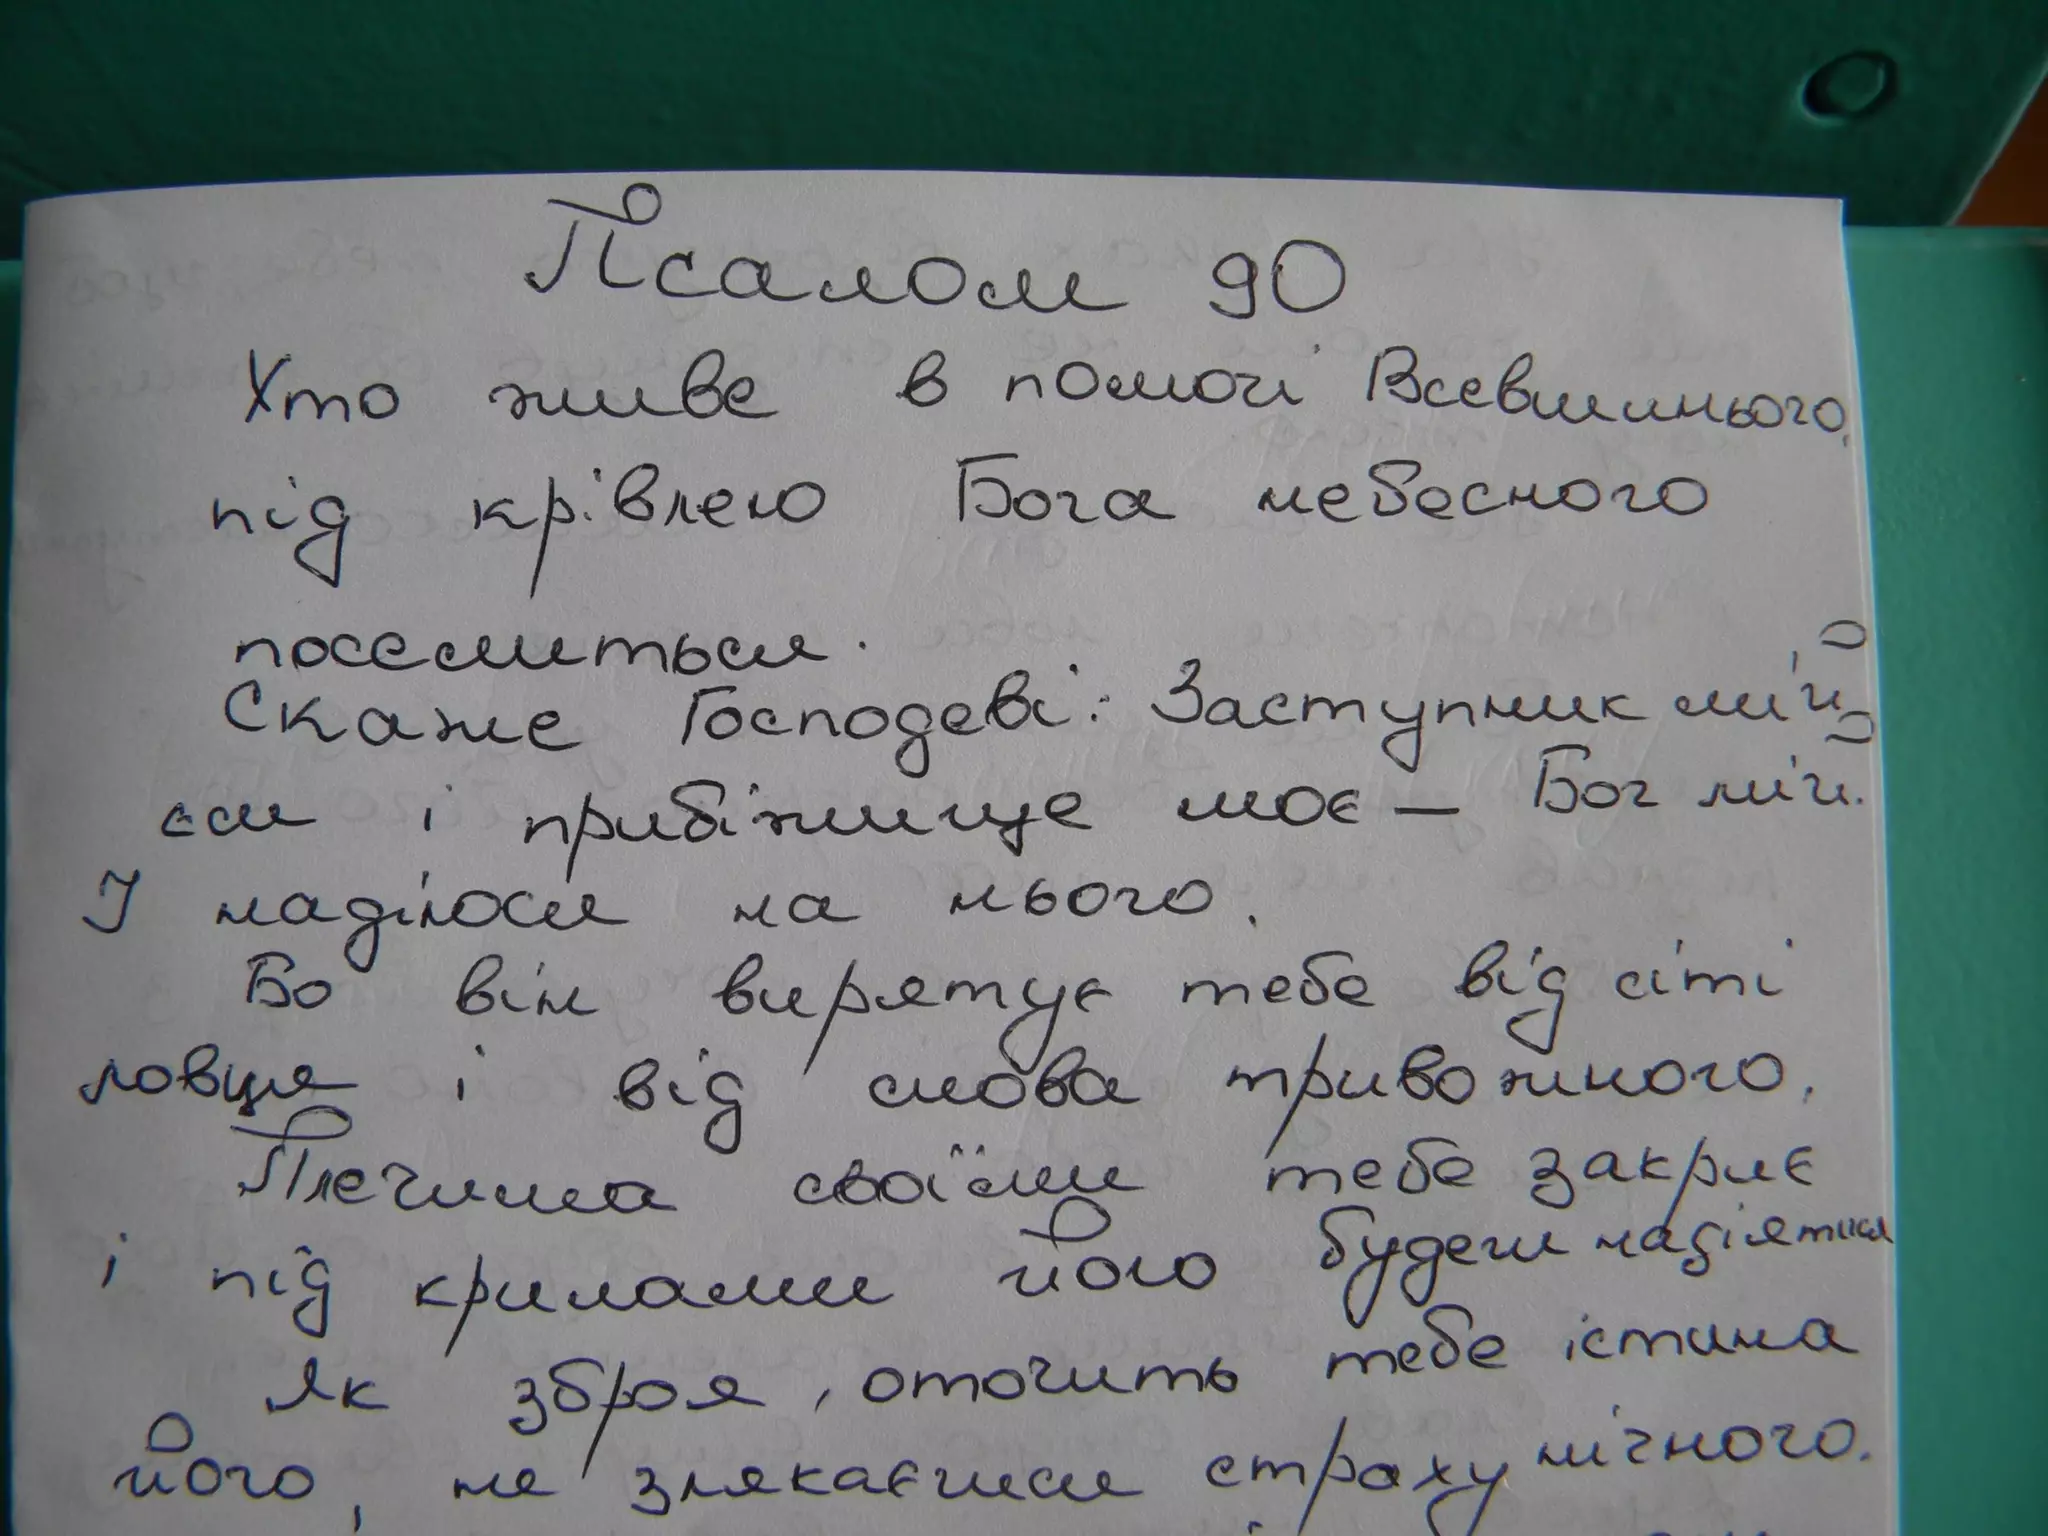 Псалом 90
Хто живе в помочі Всевишнього,
під крівлею Бога небесного
поселиться.
Скаже Господеві: Заступник мій
єси і прибіжище моє — Бог мій.
І надіюся на нього.
Бо він вирятує тебе від сіті
ловця і від слова тривожного.
Плечима своїми тебе закриє
і під крилами його будеш надіятися
Як зброя, оточить тебе істина
його, не злякаєшся страху нічного.